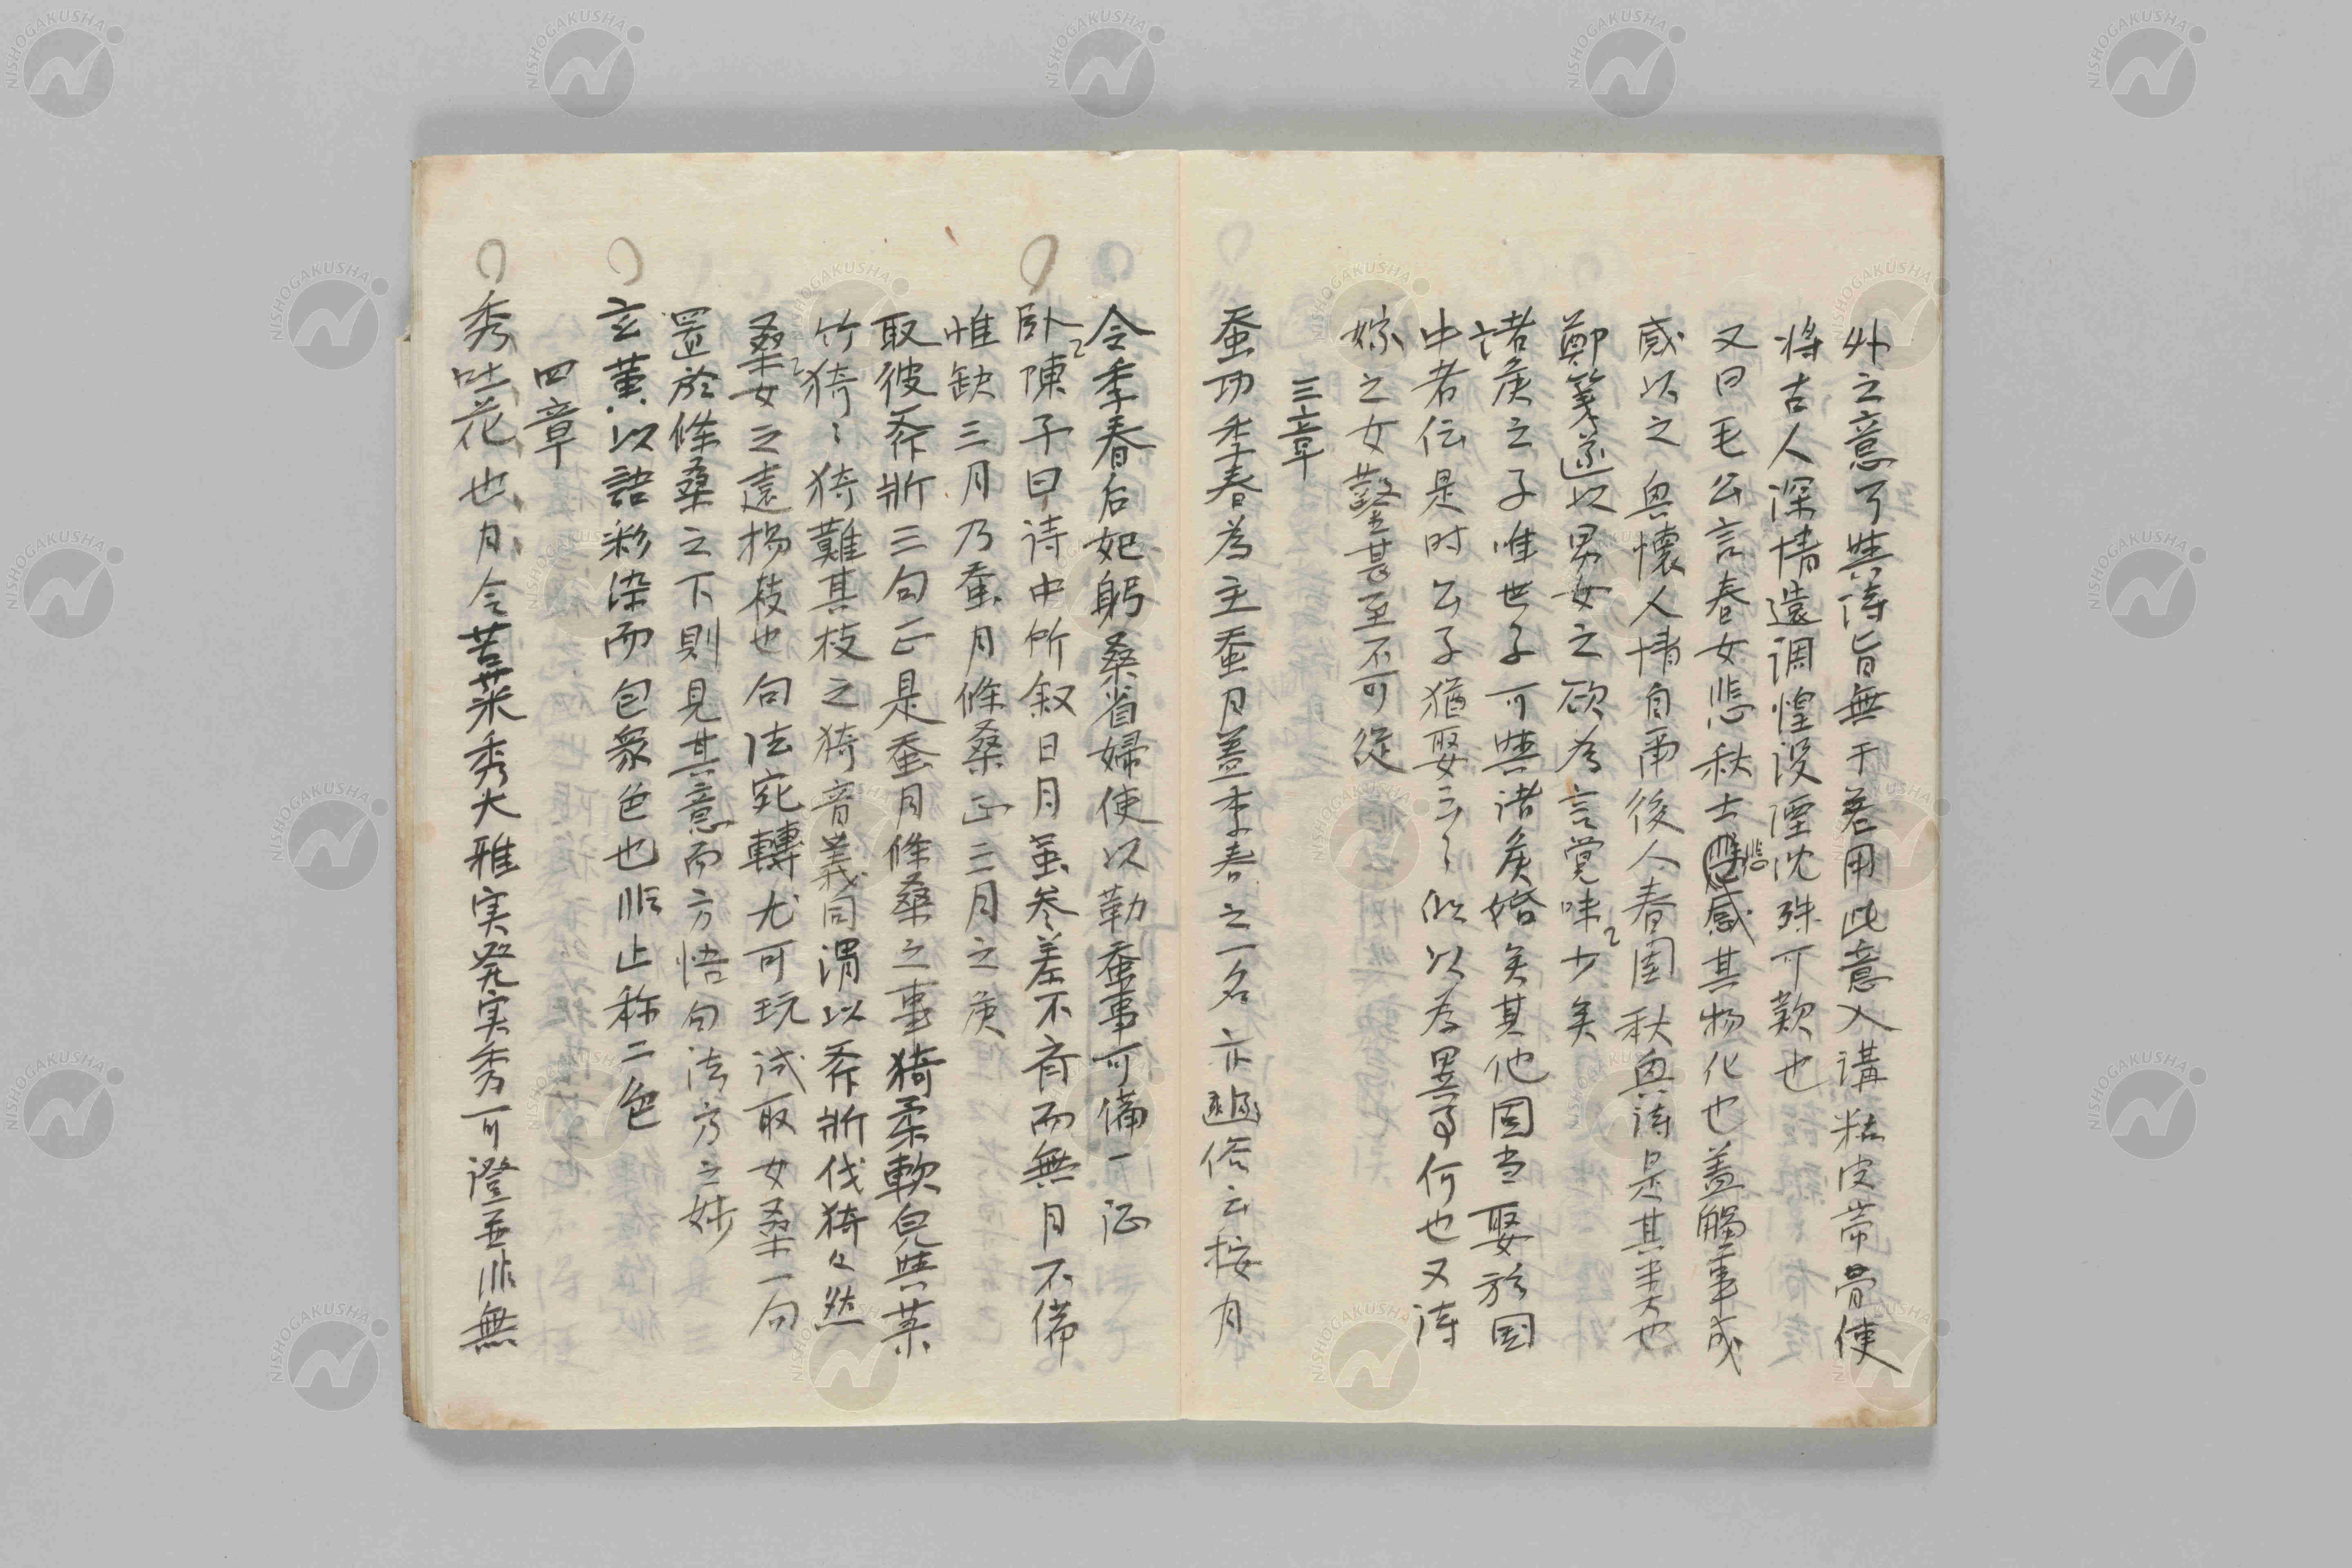 外之意了與詩旨無干若用此意入講粘皮帯骨使
将古人深情遠調惶没湮沈殊可歎也
又曰毛公言春女悲秋士悲感其物化也蓋觸事成
感以之興懐人情自甬後人春園秋興詩是其実也
鄭箋遂以男女之欲為言覚味少矣
諸矦之子唯世子可與諸矦婚矣其他固当娶於国
中者伝是时公子猶娶云々似以為異事何也又诗
嫁之女鑿甚至不可從
三章
蚕功季春為主蚕月蓋季春之一名亦豳俗云按月
令季春后妃躬桑省婦使以勸蚕事可備一証
卧陳子曰诗中所叙日月虽参差不斉而無月不備
惟缺三月乃蚕月條桑正三月之矦
取彼斧斨三句正是蚕月條桑之事猗柔軟皃與菉
竹猗々猗難其枝之猗音義同謂以斧斨伐猗々然
桑女之遠揚枝也句法宛轉尤可玩试取女桑一句
置於條桑之下則見其意而方悟句法方之妙
玄黄以語彩染而包衆色也非止称二色
四章
秀吐花也月令苦菜秀大雅実発実秀可證並非無
NISHOGAKUSHA